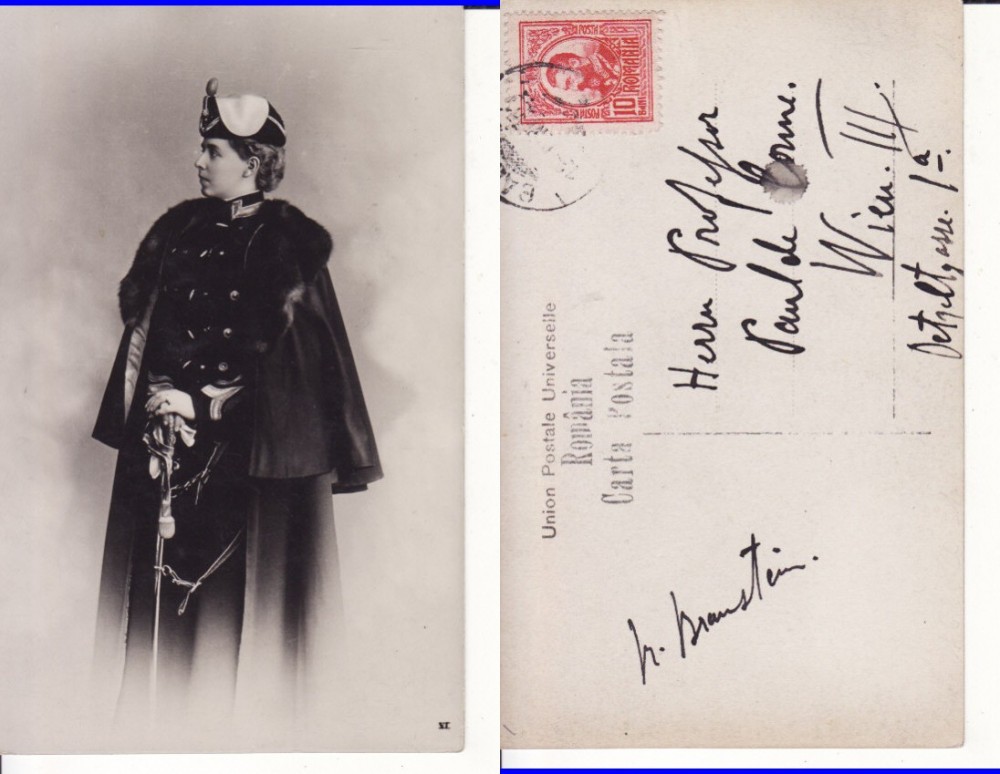 XI.
POSTA
10 ROMANIA
BANI
POSTA
Union Postale Universelle
România
Carta Postala
Herrn Professor
Paul de Conne.
Wien. III.
Oetzeltgasse. 1a.
Braunstein.